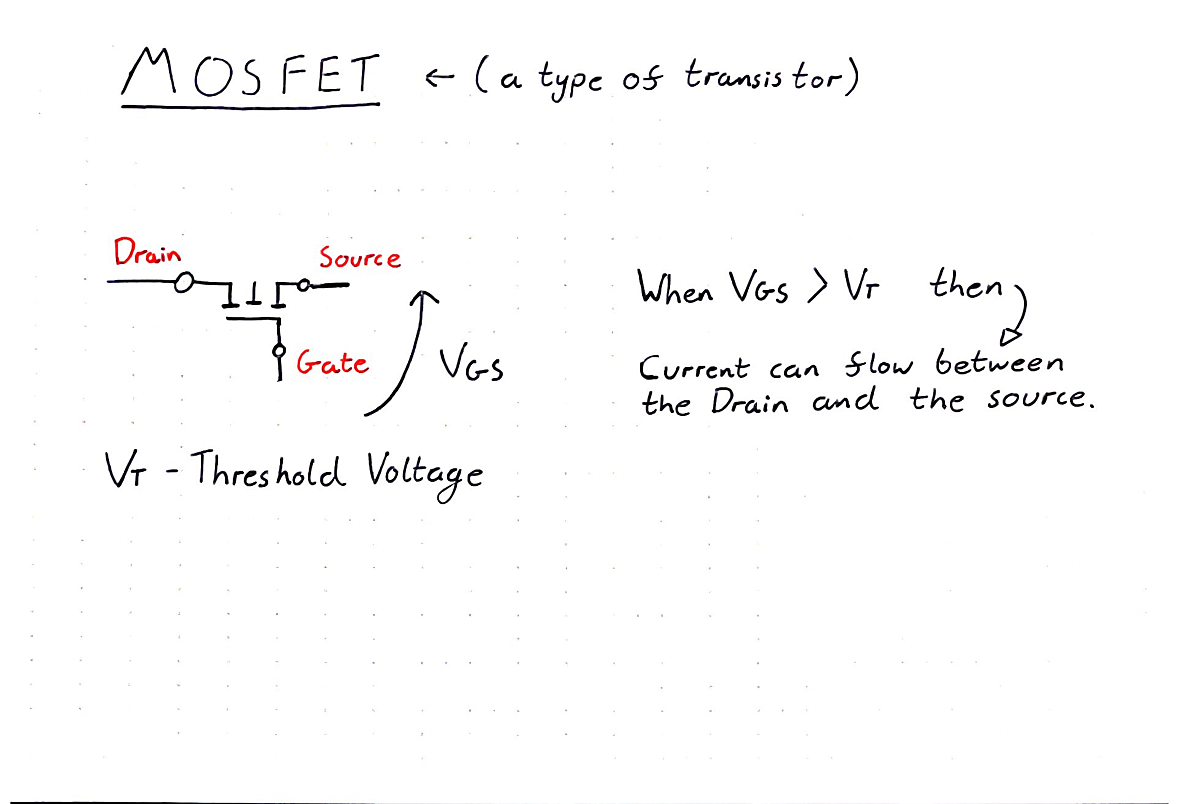 MOSFET ← (a type of transistor)
Drain
Source
Gate
VGS
VT - Threshold Voltage
When VGS > VT then
Current can flow between
the Drain and the source.